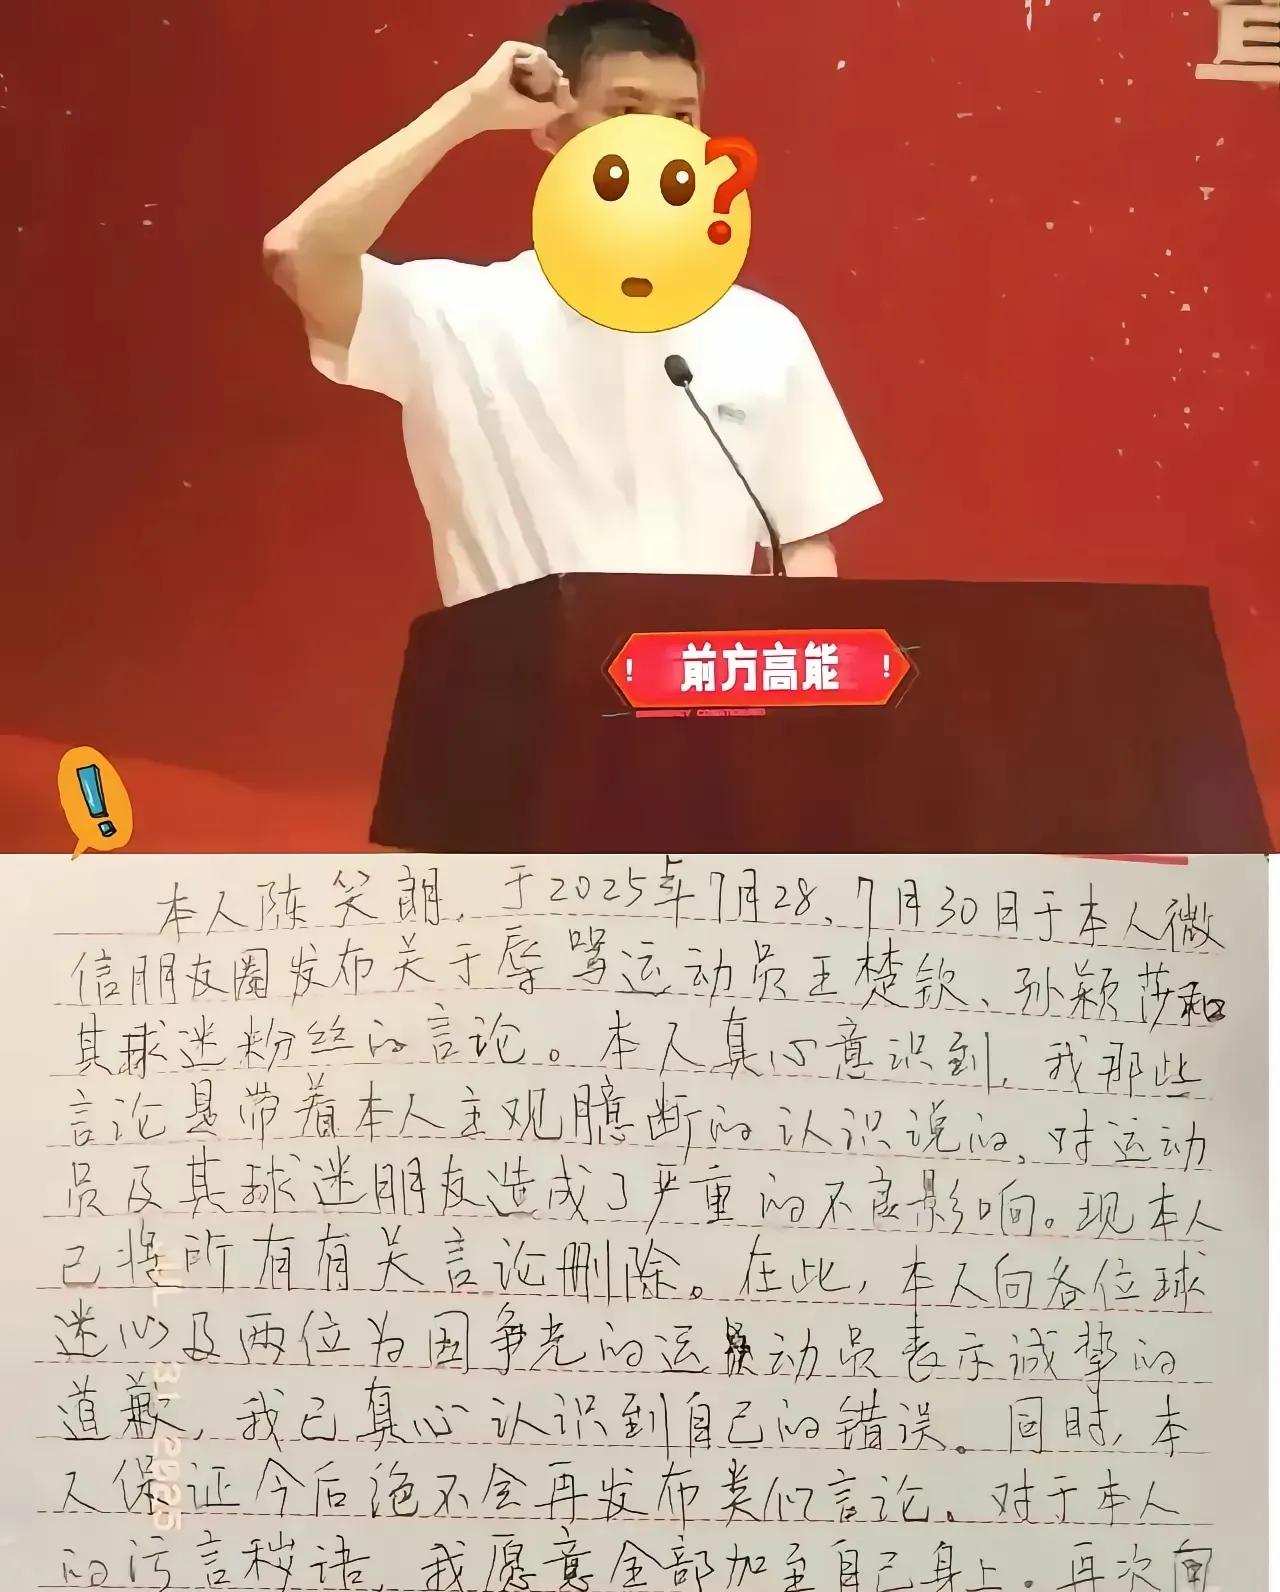 直
前方高能
本人陈笑朗，于2025年7月28、7月30日于本人微
信朋友圈发布关于辱骂运动员王楚钦、孙颖莎和
其球迷粉丝的言论。本人真心意识到，我那些
言论是带着本人主观臆断的认识说的，对运动
员及其球迷朋友造成了严重的不良影响。现本人
已将所有有关言论删除。在此，本人向各位球
迷以及两位为国争光的运动员表示诚挚的
道歉，我已真心认识到自己的错误。同时，本
人保证今后绝不会再发布类似言论。对于本人
的污言秽语，我愿意全部加至自己身上。再次向
31 2025